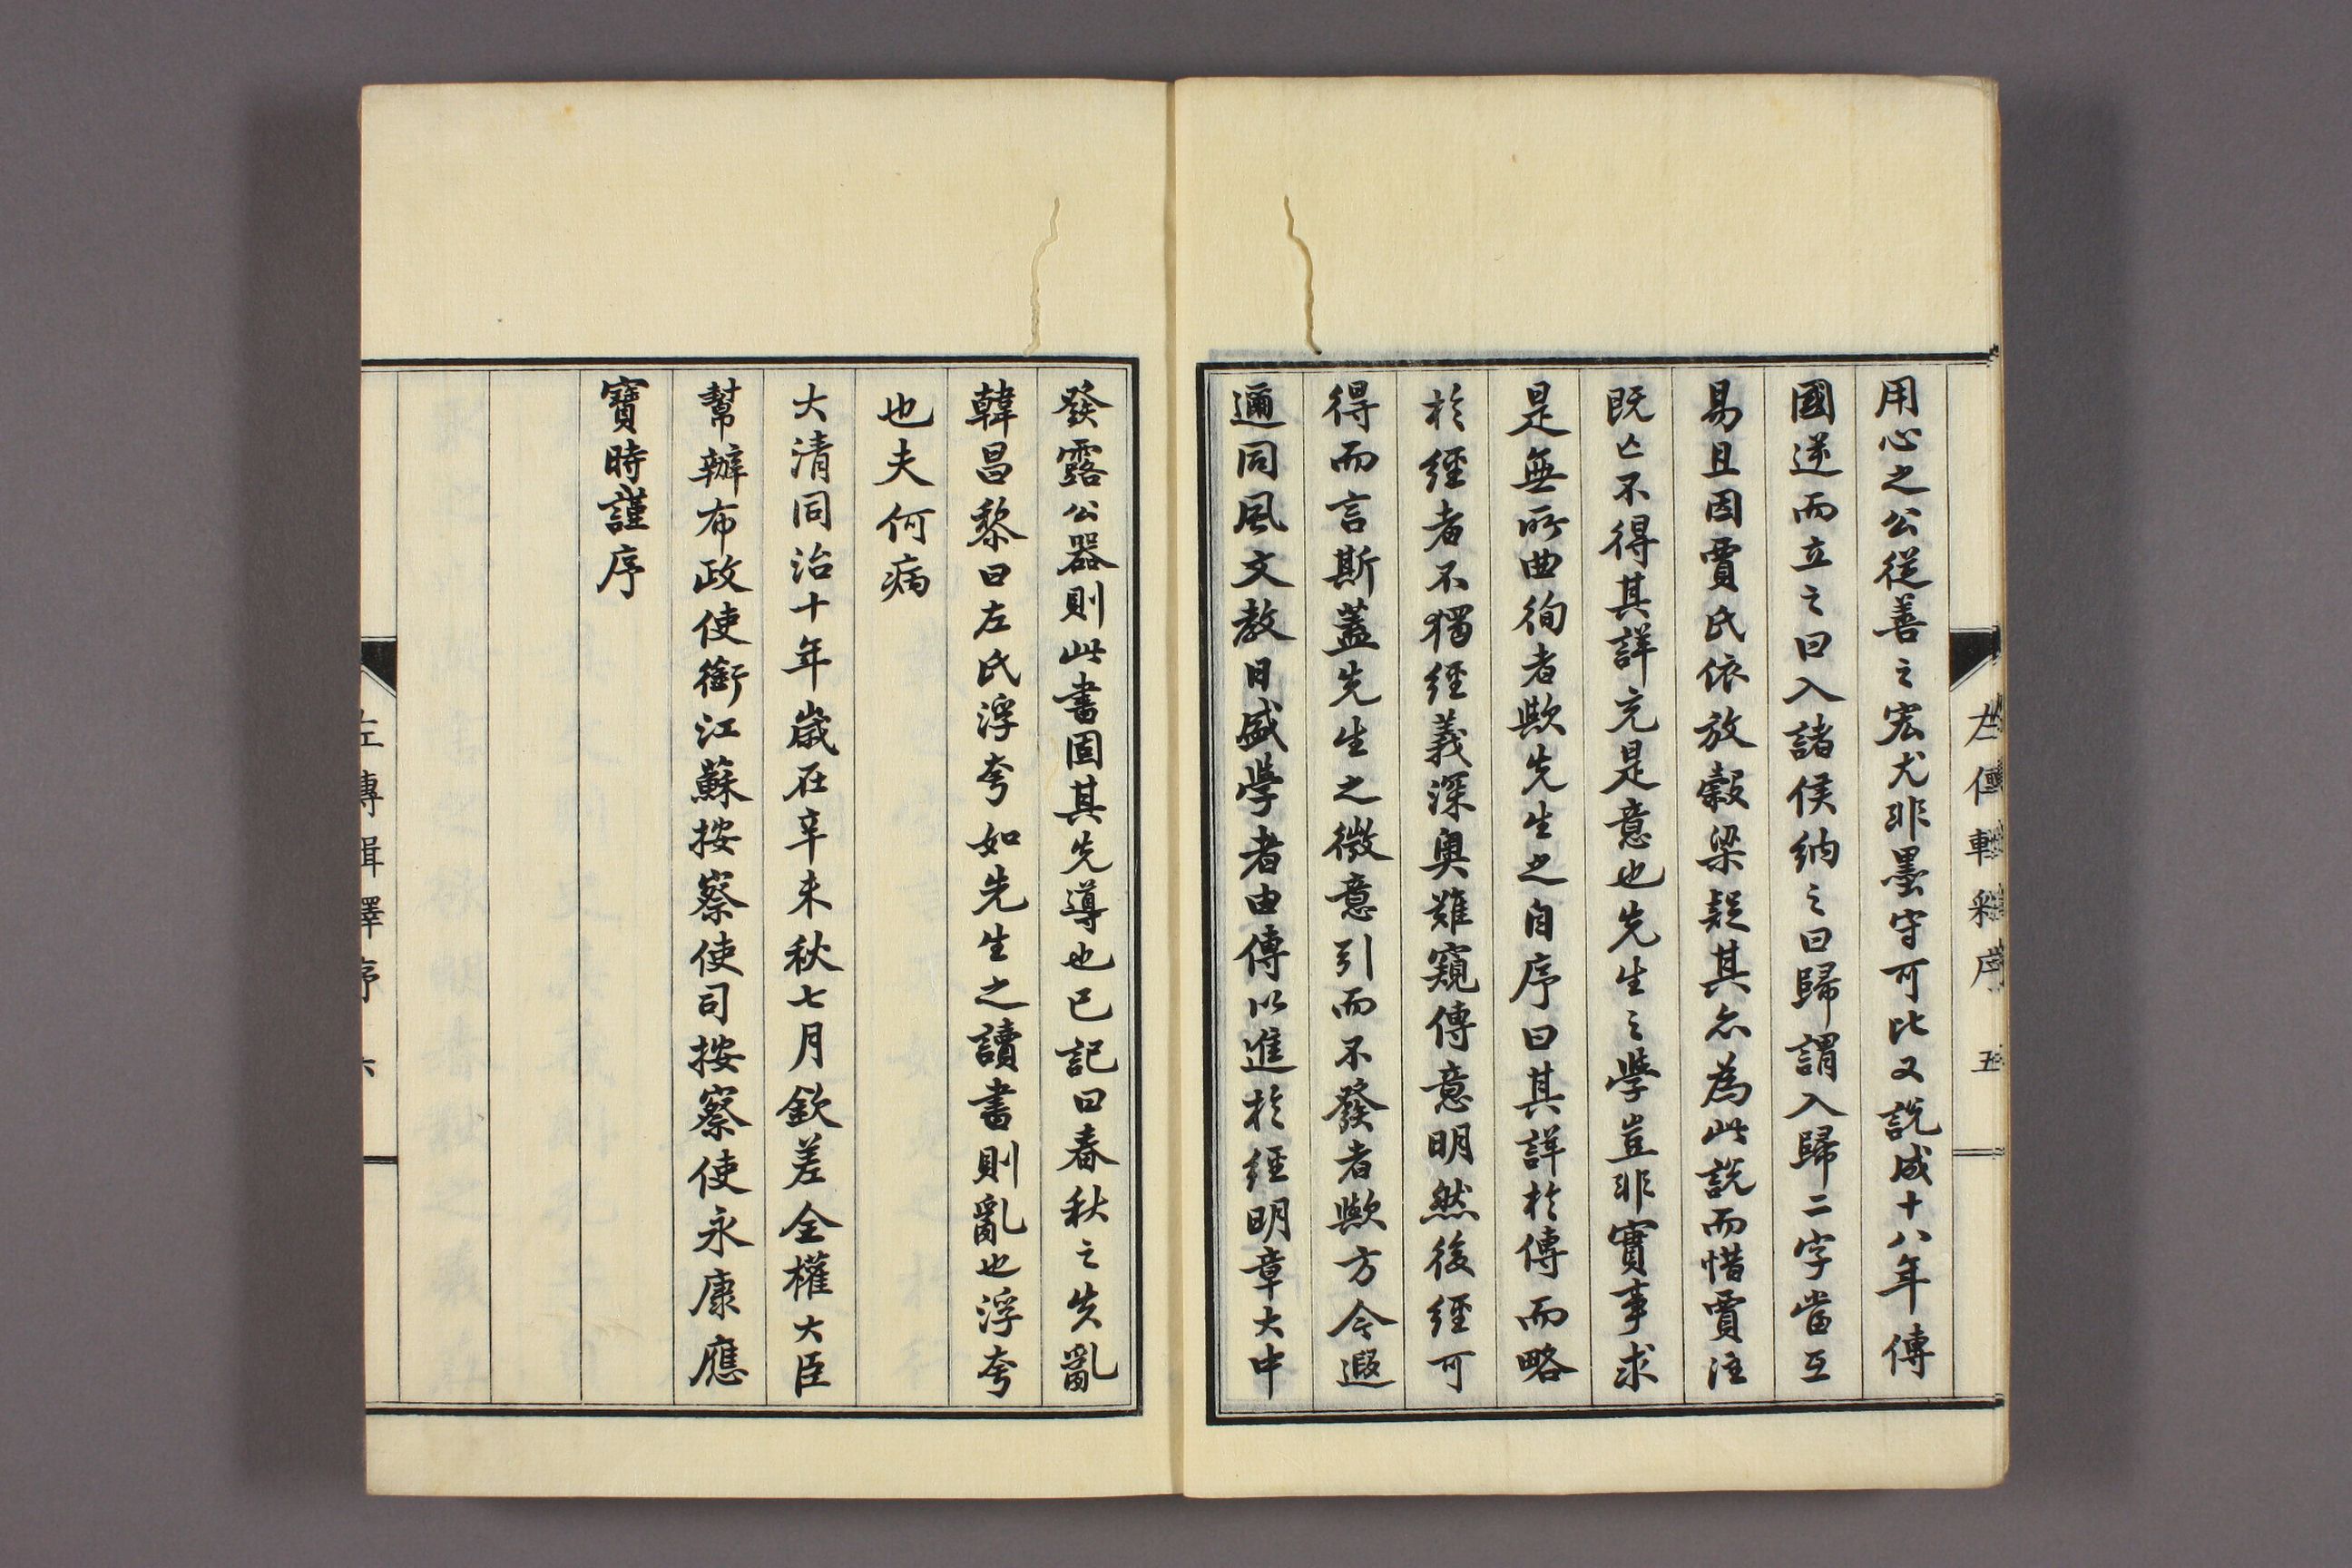 用心之公從善之宏尤非墨守可比又說成十八年傳
國逆而立之曰入諸侯納之曰歸謂入歸二字當互
易且因賈氏依放穀梁疑其亦為此說而惜賈注
既亡不得其詳充是意也先生之學豈非實事求
是無所曲徇者歟先生之自序曰其詳於傳而略
於經者不獨經義深奧難窺傳意明然後經可
得而言斯蓋先生之微意引而不發者歟方今遐
邇同風文教日盛學者由傳以進於經明章大中
左傳輯釋序 五
發露公器則此書固其先導也已記曰春秋之失亂
韓昌黎曰左氏浮夸如先生之讀書則亂也浮夸
也夫何病
大清同治十年歲在辛未秋七月欽差全權大臣
幫辦布政使銜江蘇按察使司按察使永康應
寶時謹序
左傳輯釋序 六